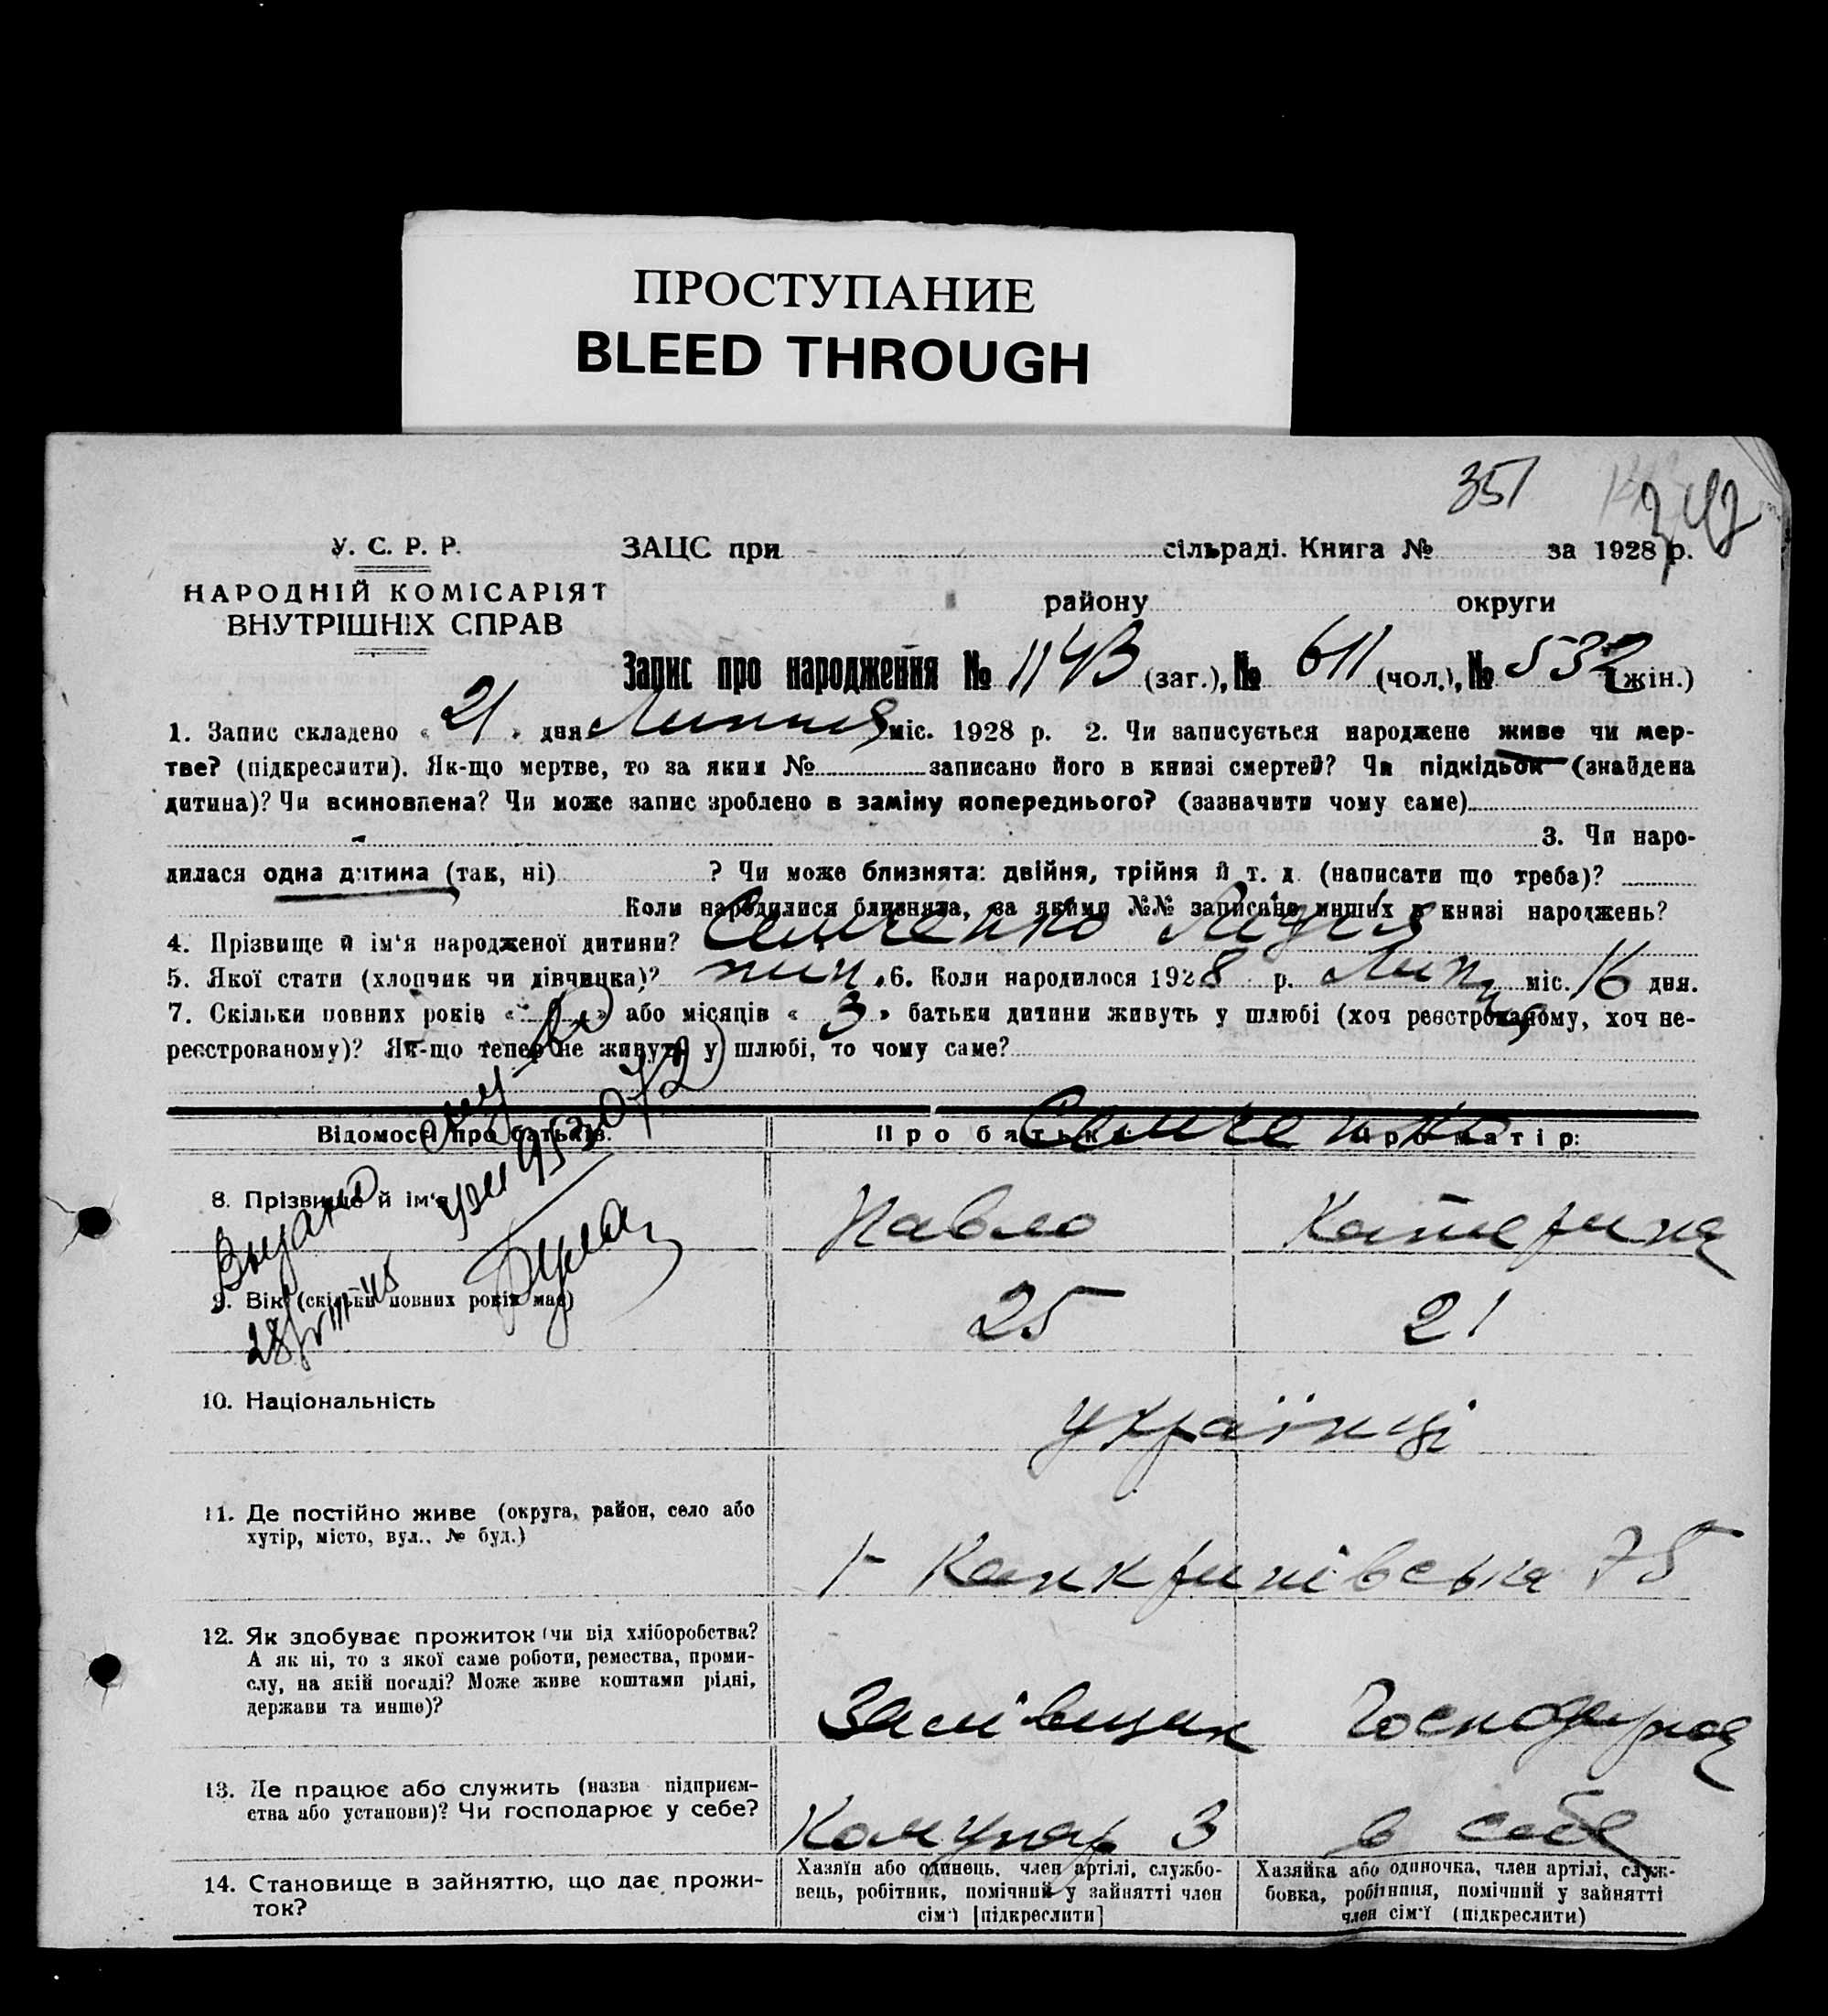 ПРОСТУПАНИЕ
BLEED THROUGH
351
342
У. С. Р. Р.
НАРОДНІЙ КОМІСАРІЯТ
ВНУТРІШНІХ СПРАВ
ЗАЦС при сільраді. Книга № за 1928 р.
району округи
Запис про народження № 1143 (заг.), № 611 (чол.), № 532 (жін.)
1. Запис складено « 21 » дня Липня міс. 1928 р. 2. Чи записується народжене живе чи мер-
тве? (підкреслити). Як-що мертве, то за яким № записано його в книзі смертей? Чи підкідьок (знайдена
дитина)? Чи всиновлена? Чи може запис зроблено в заміну попереднього? (зазначити чому саме)
3. Чи наро-
дилася одна дитина (так, ні) ? Чи може близнята: двійня, трійня й т. д. (написати що треба)?
Коли народилися близнята, за якими №№ записано инших в книзі народжень?
4. Прізвище й ім'я народженої дитини? Семченко Лідія
5. Якої стати (хлопчик чи дівчинка)? жін. 6. Коли народилося 1928 р. Липня міс. 16 дня.
7. Скільки повних років « » або місяців « 3 » батьки дитини живуть у шлюбі (хоч реєстрованому, хоч не-
реєстрованому)? Як-що тепер не живуть у шлюбі, то чому саме?
Відомості про батьків. Про батька: Про матір:
Семченко
8. Прізвище й ім'я Павло Катерина
9. Вік (скільки повних років має) 25 21
10. Національність українці
11. Де постійно живе (округа, район, село або
хутір, місто, вул., № буд.)
Канкринівська 75
12. Як здобуває прожиток (чи від хліборобства?
А як ні, то з якої саме роботи, ремества, проми-
слу, на якій посаді? Може живе коштами рідні,
держави та инше)?
Заливщик Господарює
13. Де працює або служить (назва підприєм-
ства або установи)? Чи господарює у себе?
Комунар 3 в себе
14. Становище в зайняттю, що дає прожи-
ток?
Хазяїн або одинець, член артілі, службо-
вець, робітник, помічний у зайнятті член
сім'ї [підкреслити]
Хазяйка або одиночка, член артілі, служ-
бовка, робітниця, помічний у зайнятті
член сім'ї (підкреслити)
Выдано
28/VIII 45